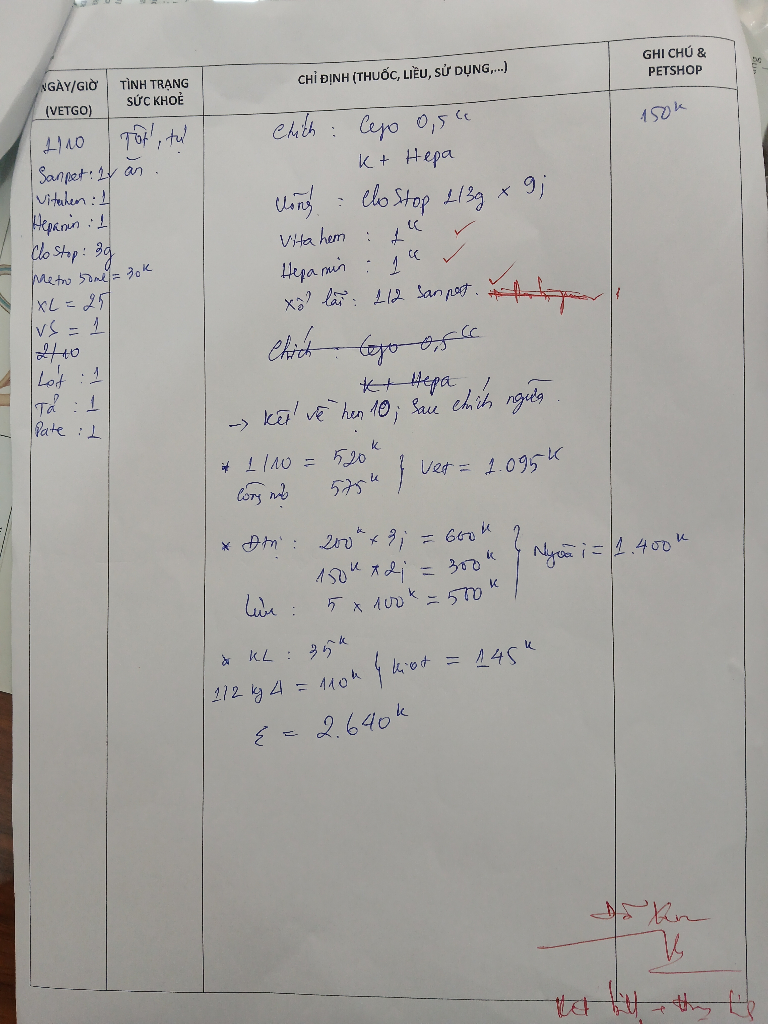 NGÀY/GIỜ
(VETGO)
TÌNH TRẠNG
SỨC KHOẺ
CHỈ ĐỊNH (THUỐC, LIỀU, SỬ DỤNG,...)
GHI CHÚ &
PETSHOP
1/10
Sanpet: 1
Vitahem : 1
Hepamin : 1
Clostop: 3g
Metro 50ml = 30k
XL = 25
VS = 1
2/10
Lót : 1
Tã : 1
Pate : 1
Tốt, tự
ăn.
Chích : Cejo 0,5cc
K + Hepa
Uống : CloStop 1/3g x 9j
Vitahem : 1cc
Hepamin : 1cc
Xổ lãi : 1/2 Sanpet.
Chích : Cejo 0,5cc
K + Hepa
→ Kết về hẹn 10j sau chích ngừa.
* 1/10 = 520k
Công nợ 575k } Vet = 1.095k
* Đtrị : 200k x 3j = 600k
150k x 2j = 300k } Ngoài = 1.400k
5 x 100k = 500k
* KL : 35k
1/2 kg A = 110k } Kiot = 145k
Σ = 2.640k
150k